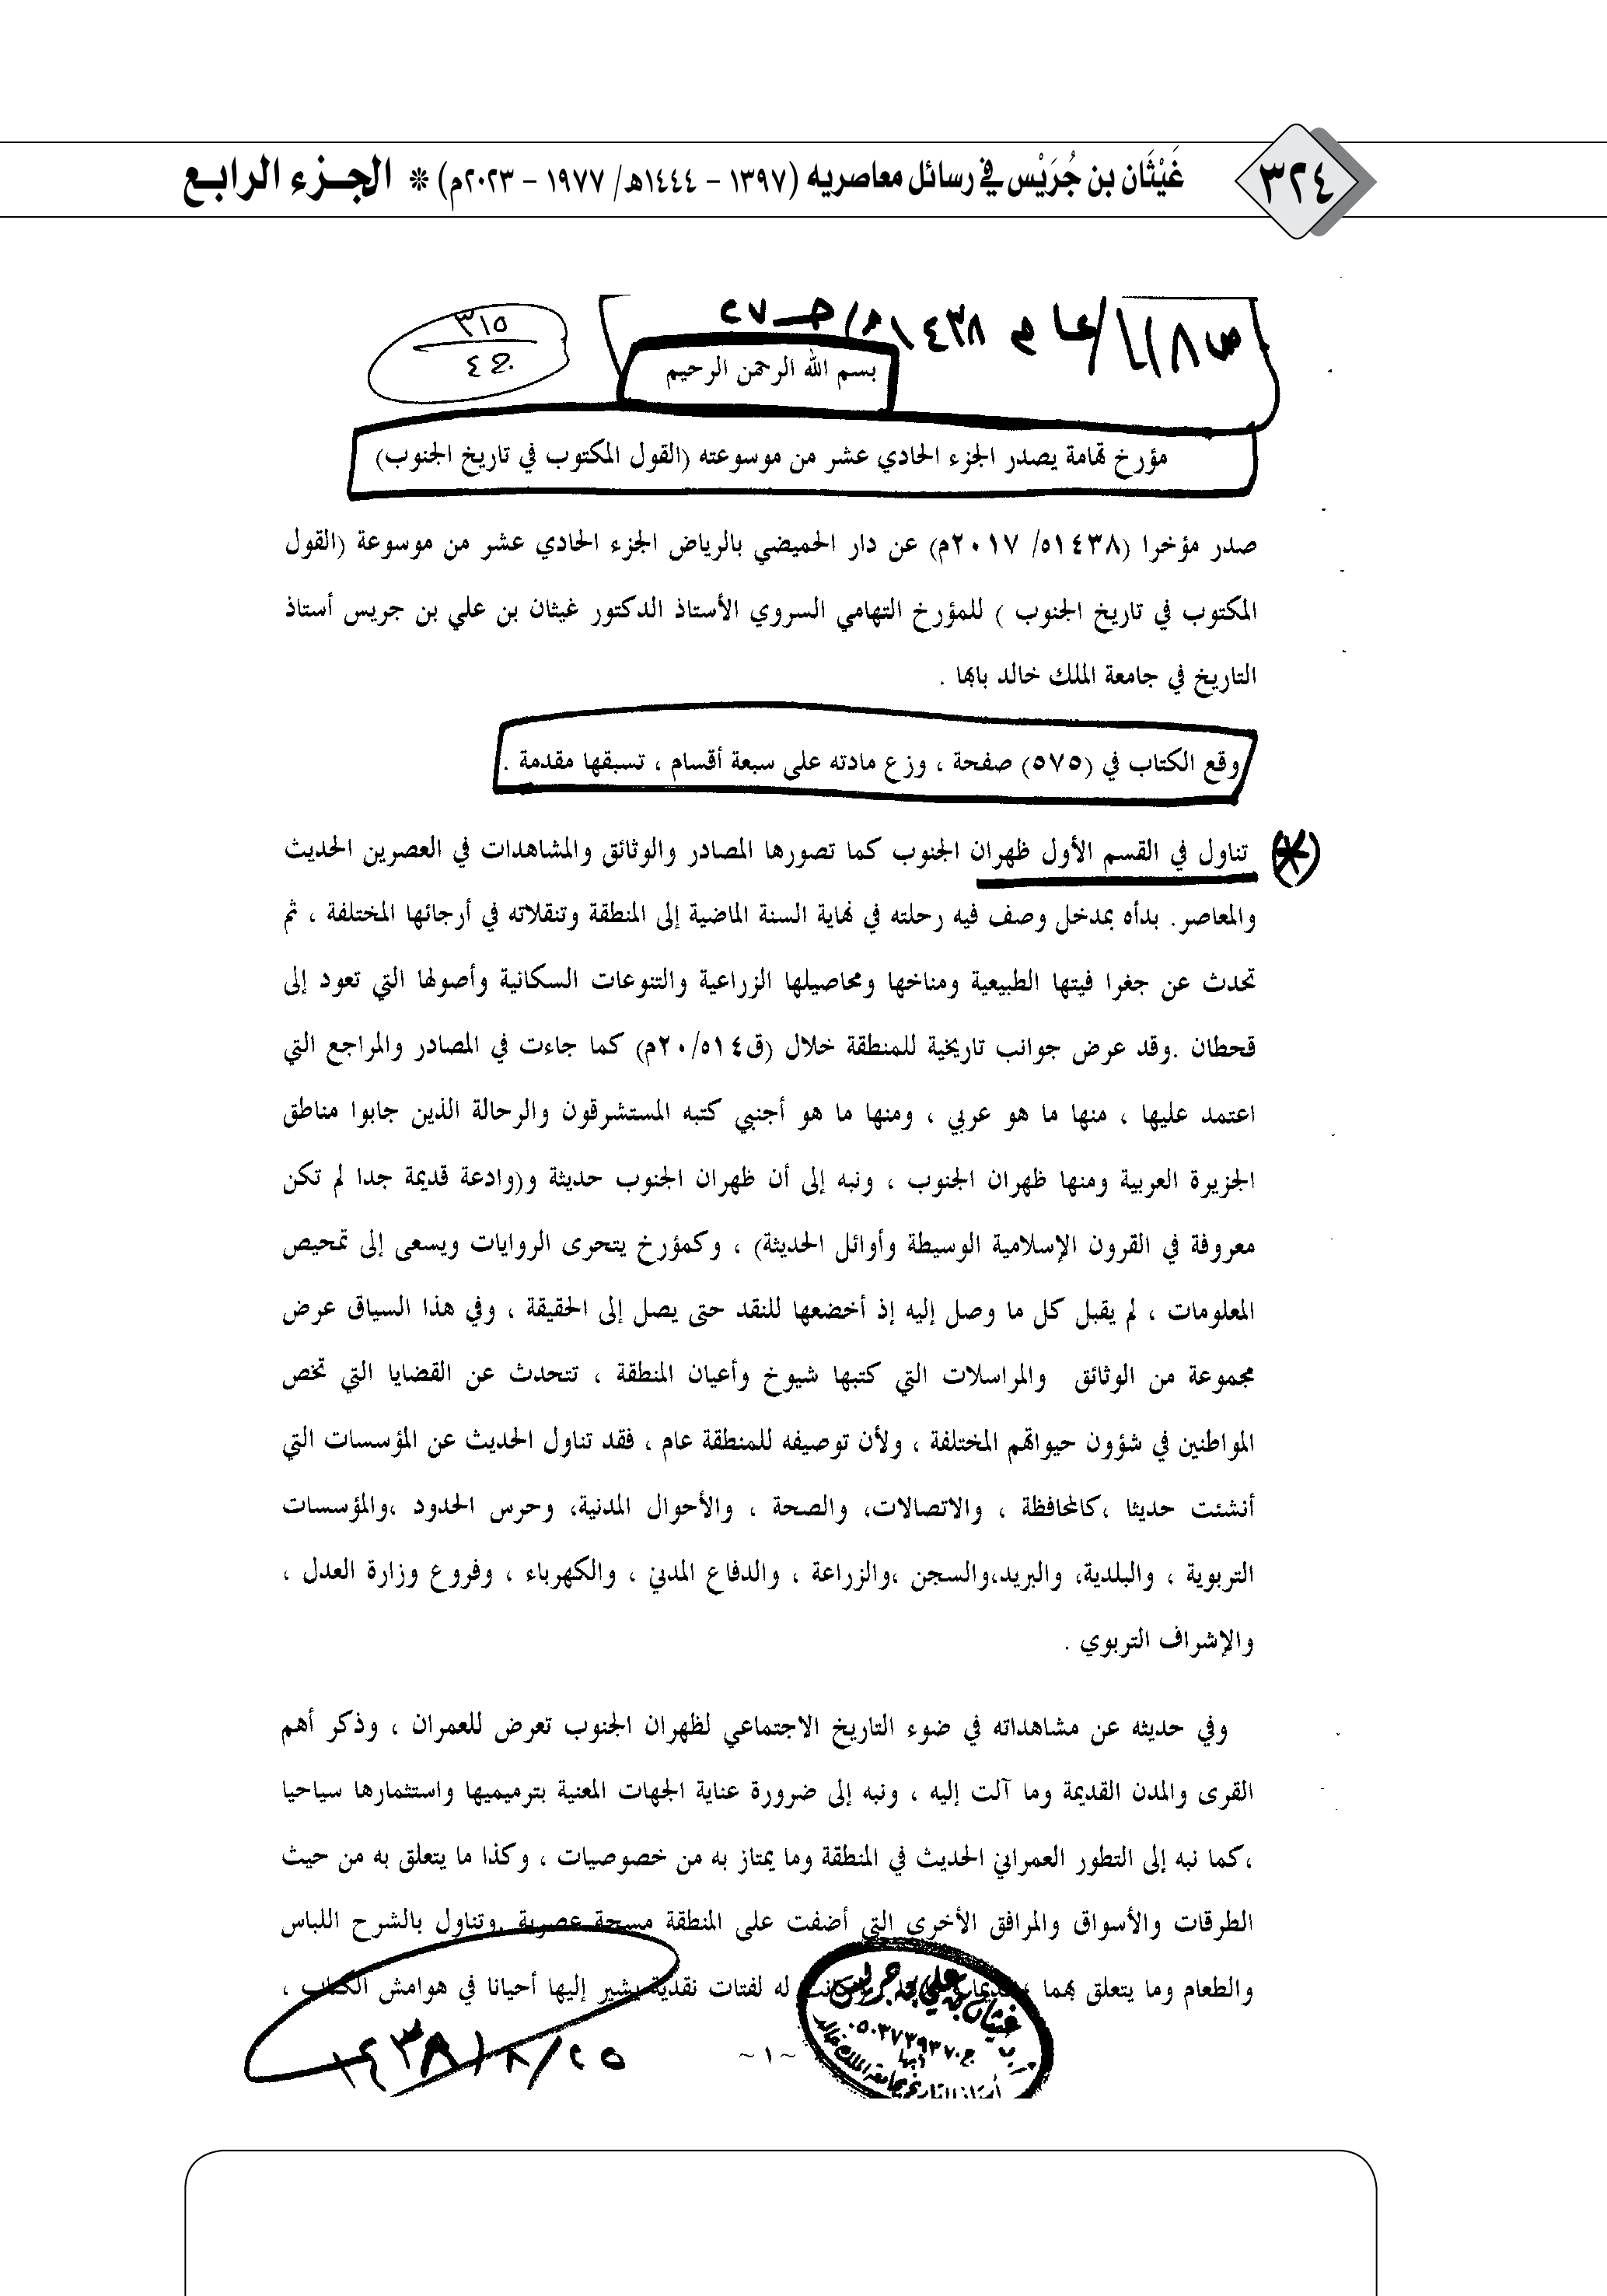 ٣٢٤
غَيْثَان بن جُرَيْس في رسائل معاصريه (١٣٩٧ - ١٤٤٤هـ/ ١٩٧٧ - ٢٠٢٣م) * الجـزء الرابـع
٣١٥
ج ٤
بسم الله الرحمن الرحيم
مؤرخ تهامة يصدر الجزء الحادي عشر من موسوعته (القول المكتوب في تاريخ الجنوب)
صدر مؤخرا (١٤٣٨ه/ ٢٠١٧م) عن دار الحميضي بالرياض الجزء الحادي عشر من موسوعة (القول
المكتوب في تاريخ الجنوب ) للمؤرخ التهامي السروي الأستاذ الدكتور غيثان بن علي بن جريس أستاذ
التاريخ في جامعة الملك خالد بابها .
وقع الكتاب في (٥٧٥) صفحة ، وزع مادته على سبعة أقسام ، تسبقها مقدمة .
(*) تناول في القسم الأول ظهران الجنوب كما تصورها المصادر والوثائق والمشاهدات في العصرين الحديث
والمعاصر. بدأه بمدخل وصف فيه رحلته في نهاية السنة الماضية إلى المنطقة وتنقلاته في أرجائها المختلفة ، ثم
تحدث عن جغرا فيتها الطبيعية ومناخها ومحاصيلها الزراعية والتنوعات السكانية وأصولها التي تعود إلى
قحطان .وقد عرض جوانب تاريخية للمنطقة خلال (ق١٤ه/٢٠م) كما جاءت في المصادر والمراجع التي
اعتمد عليها ، منها ما هو عربي ، ومنها ما هو أجنبي كتبه المستشرقون والرحالة الذين جابوا مناطق
الجزيرة العربية ومنها ظهران الجنوب ، ونبه إلى أن ظهران الجنوب حديثة و(وادعة قديمة جدا لم تكن
معروفة في القرون الإسلامية الوسيطة وأوائل الحديثة) ، وكمؤرخ يتحرى الروايات ويسعى إلى تمحيص
المعلومات ، لم يقبل كل ما وصل إليه إذ أخضعها للنقد حتى يصل إلى الحقيقة ، وفي هذا السياق عرض
مجموعة من الوثائق والمراسلات التي كتبها شيوخ وأعيان المنطقة ، تتحدث عن القضايا التي تخص
المواطنين في شؤون حيواتهم المختلفة ، ولأن توصيفه للمنطقة عام ، فقد تناول الحديث عن المؤسسات التي
أنشئت حديثا ،كالمحافظة ، والاتصالات، والصحة ، والأحوال المدنية، وحرس الحدود ،والمؤسسات
التربوية ، والبلدية، والبريد،والسجن ،والزراعة ، والدفاع المدني ، والكهرباء ، وفروع وزارة العدل ،
والإشراف التربوي .
وفي حديثه عن مشاهداته في ضوء التاريخ الاجتماعي لظهران الجنوب تعرض للعمران ، وذكر أهم
القرى والمدن القديمة وما آلت إليه ، ونبه إلى ضرورة عناية الجهات المعنية بترميمها واستثمارها سياحيا
،كما نبه إلى التطور العمراني الحديث في المنطقة وما يمتاز به من خصوصيات ، وكذا ما يتعلق به من حيث
الطرقات والأسواق والمرافق الأخرى التي أضفت على المنطقة مسحة عصرية .وتناول بالشرح اللباس
والطعام وما يتعلق بهما له لفتات نقدية يشير إليها أحيانا في هوامش الكتاب ،
~ ١ ~
غيثان بن علي بن جريس
ج.٠٥٠٣٧٣٩٣٧٠
أبها
أستاذ التاريخ بجامعة الملك خالد
٢٥/ ٨/ ١٤٣٨